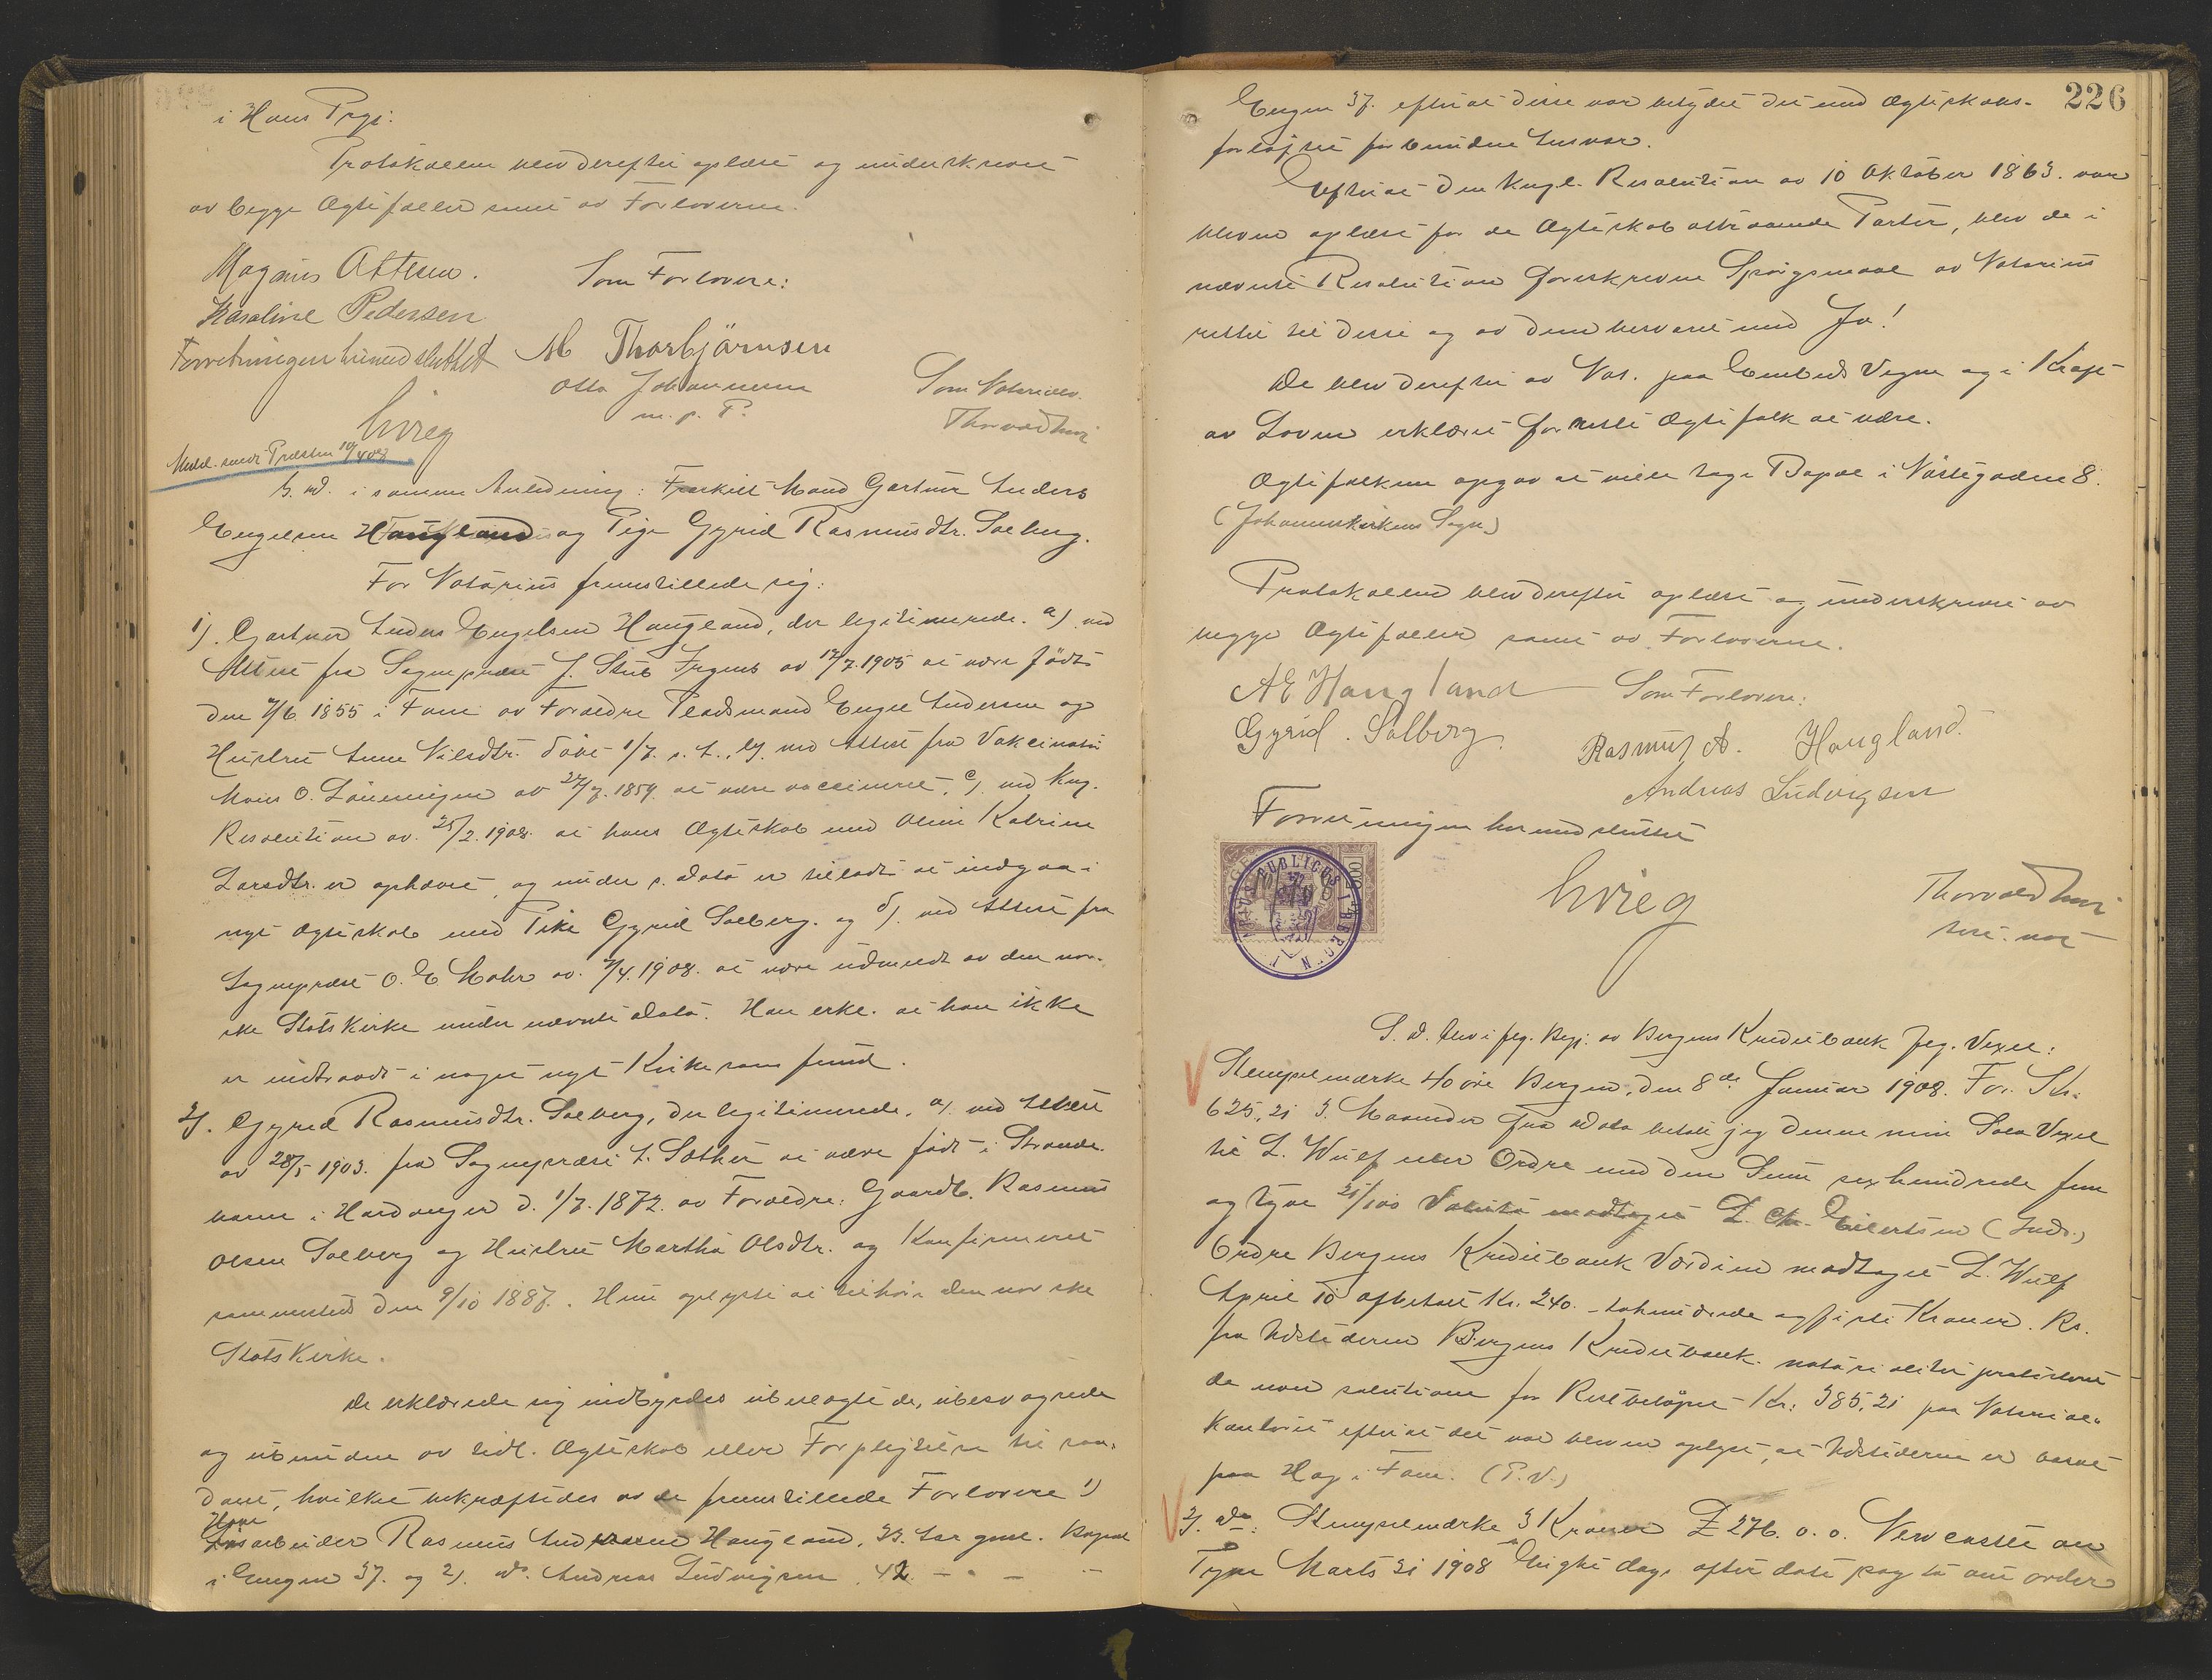 i Hans Prgj:
Protokollen blev derefter oplæst og underskrevet
av begge Ægtefæller samt av Forloverne.
Magnus Ottesen.
Som Forlovere:
Karoline Pedersen
Forretningen hermed sluttet
M Thorbjörnsen
Otto Johannesen
m. p. P.
Som Notarialv.
Krieg
Medd. sendt Præsten 10/4 08
S. D. i samme Anledning: Fraskilt Mand Gartner Anders
Engelsen Haugland og Pige Gyrid Rasmusdtr. Solberg.
For Notarius fremstillede sig:
1). Gartner Anders Engelsen Haugland, der legitimerede. a) ved
Attest fra Sogneprest J. Stub Irgens av 12/7. 1905 at være født
den 7/6 1855 i Fane av Forældre Pladsmand Engel Andersen og
Hustru Anne Nilsdtr. døbt 1/7. s. A., b) ved Attest fra Vakcinatør
Mons O. Lönningen av 27/7. 1859 at være vaccineret, c) ved Kng.
Resolution av. 25/2. 1908. at hans Ægteskab med Oline Katrine
Larsdtr. er ophævet, og under s. Dato er tilladt at indgaa i
nyt Ægteskab med Pike Gyrid Solberg. og d). ved Attest fra
Sogneprest O. E Mohr av. 7/4. 1908. at være udmeldt av den nor-
ske Statskirke under nævnte Dato. Han erkl. at han ikke
er indtraadt i noget nyt Kirkesamfund.
2). Gyrid Rasmusdtr. Solberg, der legitimerede, a). ved Attest
av 28/5 1903. fra Sogneprest A. Sæther at være født i Strande-
barm i Hardanger d. 1/7. 1872. av Forældre: Gaardb. Rasmus
Olsen Solberg og Hustru Martha Olsdtr. og Konfirmeret
sammesteds den 9/10 1887. Hun oplyste at tilhøre den norske
Statskirke.
De erklærede sig indbyrdes ubeslægtede, ubesvogrede
og ubundne av tidl. Ægteskab eller Forpligtelse til saa-
dant, hvilket bekræftedes av de fremstillede Forlovere 1)
Havne
arbeider Rasmus Andersen Haugland, 33. Aar gml. Bopæl
i Engen 37. og 2). Do. Andreas Ludvigsen, 42 - " - -
226
Engen 37. efterat disse var betydet det med Ægteskabs-
forløftet forbundne Ansvar.
Efterat den Kngl. Resolution av 10 Oktober 1863. var
bleven oplæst for de Ægteskab attraaende Parter, blev de i
nævnte Resolution foreskrevne Spørgsmaal av Notarius
rettet til disse og av dem besvaret med Ja!
De blev derefter av Not. paa Embeds Vegne og i Kraft
av Loven erklæret for rette Ægtefolk at være.
Ægtefolkene opgav at ville tage Bopæl i Nöstegaden 8.
(Johanneskirkens Sogn)
Protokollen blev derefter oplæst og underskrevet av
begge Ægtefæller samt av Forloverne.
A E Haugland
Som Forlovere:
Gyrid. Solberg.
Rasmus A. Haugland.
Andreas Ludvigsen
Forretningen hermed sluttet
NOTARIUS PUBLICUS I BERGEN
Krieg
S. D. blev i flg. Begj. av Bergens Kreditbank flg. Vexel:
Stempelmærke 40 øre Bergen, den 8de Januar 1908. For. Kr.
625,21 3. Maaneder fra Dato betale jeg denne min Sola Vexel
til L. Wulf eller Ordre med den Sum sexhundrede fem
og tyve 21/100 Valuta modtaget L. Chr. Eilertsen (Ind.)
Ordre Bergens Kreditbank Værdien modtaget L. Wulf
April 10 afbetalt Kr. 240. - tohundrede og firti Kroner. Rs.
fra Udstederen Bergens Kreditbank. notarialiter protesteret
de non solutione for Restbeløpet Kr: 385,21 paa Notarial-
kontoret efterat det var bleven oplyst, at Udstederen er
paa Hop i Fane. (P. V.)
2). Do: Stempelmærke 3 Kroner £ 276. 0. 0. Newcastle on
Tyne Marts 31 1908 Eight days after date pay to our order